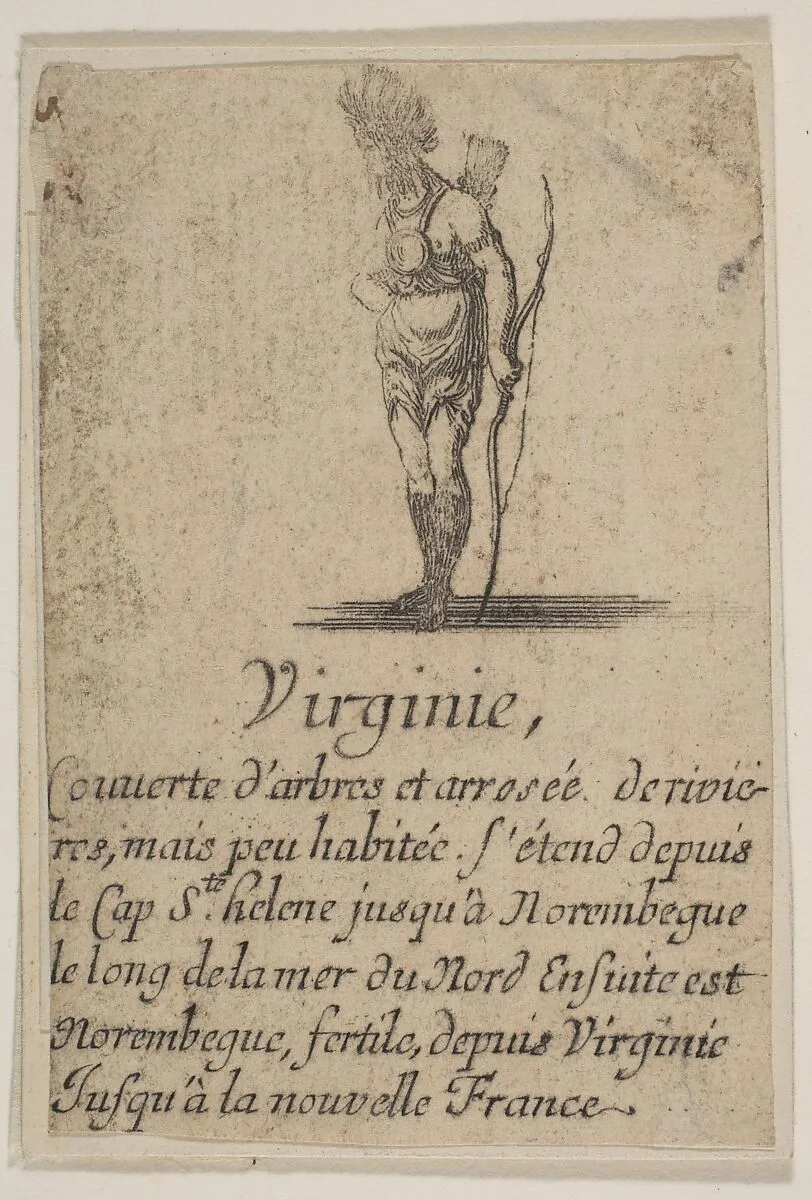 Virginie,
Couuerte d'arbres et arrosée. de riviè-
res, mais peu habitée. S'étend depuis
le Cap S.te helene jusqu'à Norembegue
le long de la mer du Nord Ensuite est
Norembegue, fertile, depuis Virginie
Jusqu'à la nouvelle France.